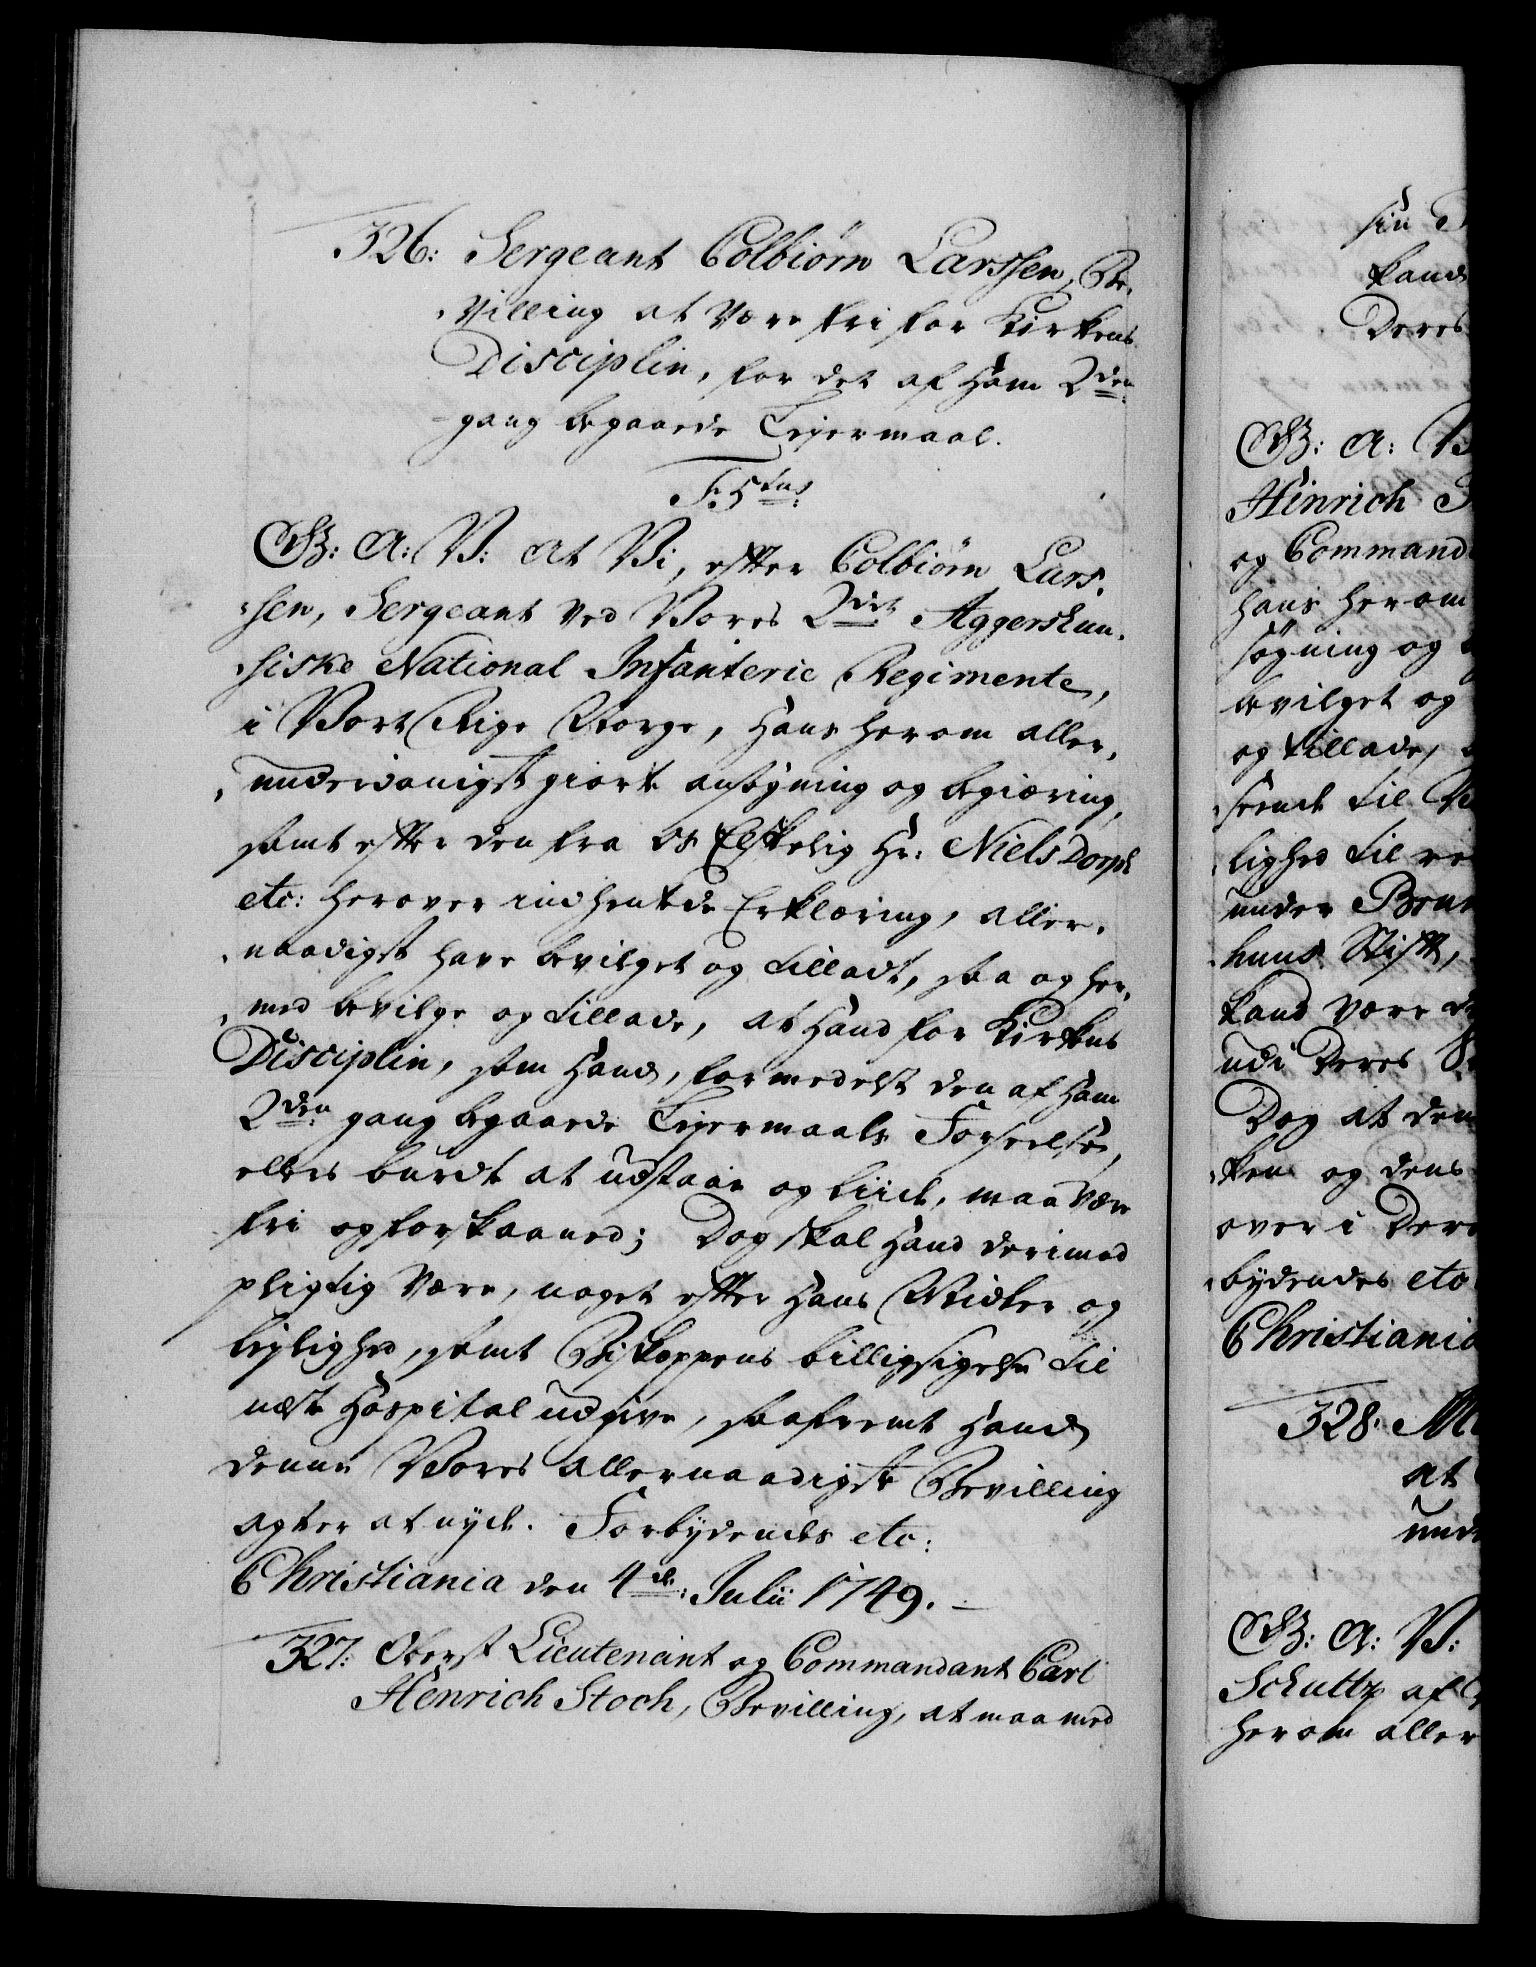 326: Sergeant Colbiørn Larssen, Be-
villing at være fri for Kirkens
Disciplin, for det af ham 2den
gang begaaede Leyermaal.
F. 5tus
G: A: V: at Vi, efter Colbiørn Lars-
sen, Sergeant ved Vores 2det Aggershuu-
siske National Infanterie Regimente,
i Vort Rige Norge, hans herom aller-
underdanigst giorte ansøgning og begiæring,
samt efter den fra os Elskelig Hr: Niels Dorph
etc: herover indhentede Erklæring, aller-
naadigst have bevilget og tilladt, saa og her-
med bevilge og tillade, at hand for Kirkens
Disciplin, som hand, formedelst den af ham
2den gang begaaede Leyermaals Forseelse,
ellers burde at udstaae og liide, maa være
fri og forskaaned; Dog skal hand derimod
pligtig være, noget efter hans Midler og
leylighed, samt Biskoppens billigsigelse til
næste Hospital udgive, saafremt hand
denne Vores allernaadigste Bevilling
agter at nyde. Forbydendes etc:
Christiania den 4de Julii 1749.
327: Oberst Lieutenant og Commandant Carl
Henrich Stoch, Bevilling, at maa med
sin
kand
Deres
G: A: V
Hinrich
og Command
hans herom
søgning og
bevilget og
og tillade,
lighed til
under
huus Stift,
kand være
udi Deres
Dog at den
ken og dens
over i Dere
bydendes etc
Christiania
328.
at
und
G: A: V:
Schultz af
herom aller